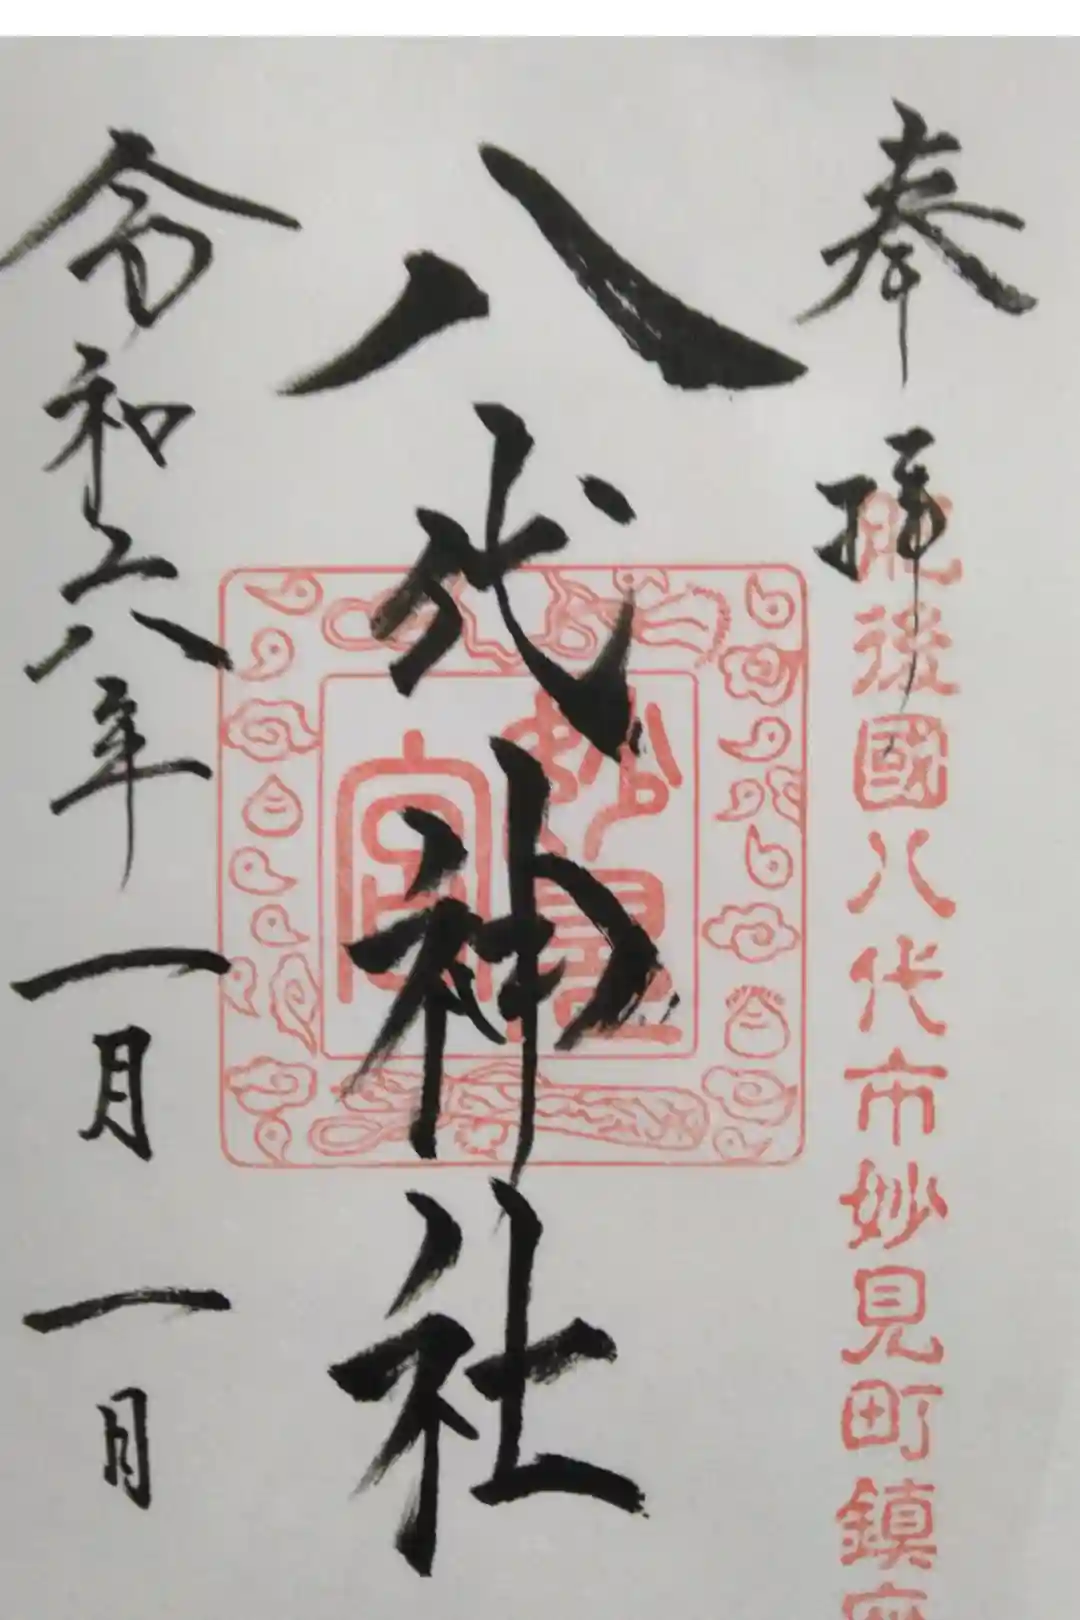 肥後國八代市妙見町鎮座
奉拝
八代神社
妙
宮
令和六年一月一日